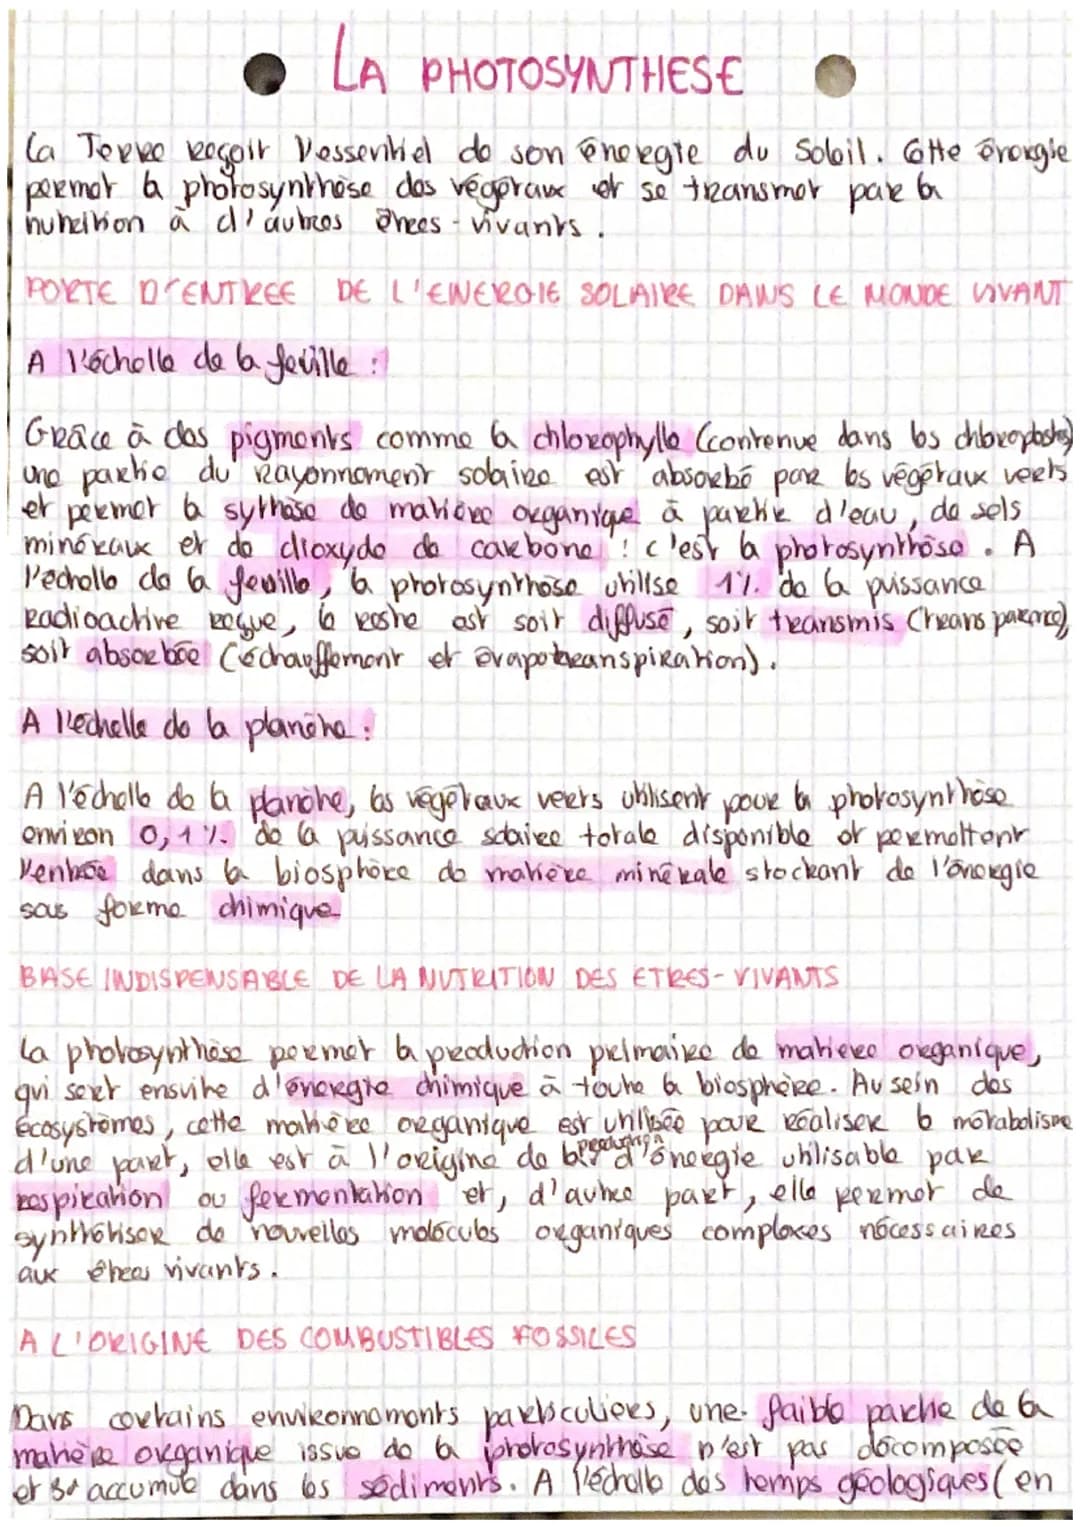 LA PHOTOSYNTHESE
La Terre reçoit l'essentiel de son énergie du Soleil. Cette énergie
permet la photosynthèse des végétaux et se transmet par la
nutrition à d'autres êtres-vivants.
PORTE D'ENTREE DE L'ENERGIE SOLAIRE DANS LE MONDE VIVANT
A l'échelle de la feuille :
Grâce à des pigments comme la chlorophylle (contenue dans les chloroplastes)
une partie du rayonnement solaire est absorbé par les végétaux verts
et permet la sythèse de matière organique à partir d'eau, de sels
minéraux et de dioxyde de carbone : c'est la photosynthèse. A
l'echelle de la feuille, la photosynthèse utilise 1% de la puissance
Radioactive reçue, le reste est soit diffusé, soit transmis (transparence),
soit absorbée (échauffement et évapotranspiration).
A l'echelle de la planète :
A l'échelle de la planète, les végétaux verts utilisent pour la photosynthèse
environ 0,1% de la puissance solaire totale disponible et permettent
l'entrée dans la biosphère de matière minérale stockant de l'énergie
sous forme chimique
BASE INDISPENSABLE DE LA NUTRITION DES ETRES-VIVANTS
La photosynthèse permet la production primaire de matière organique,
qui sert ensuite d'énergie chimique à toute la biosphère. Au sein des
écosystèmes, cette matière organique est utilisée pour réaliser le métabolisme
d'une part, elle est à l'origine de la production d'énergie utilisable par
respiration ou fermentation et, d'autre part, elle permet de
synthétiser de nouvelles molécules organiques complexes nécessaires
aux êtres vivants.
A L'ORIGINE DES COMBUSTIBLES FOSSILES
Dans certains environnements particuliers, une faible partie de la
matière organique issue de la photosynthèse n'est pas décomposée
et s'accumule dans les sédiments. A l'échelle des temps géologiques (en